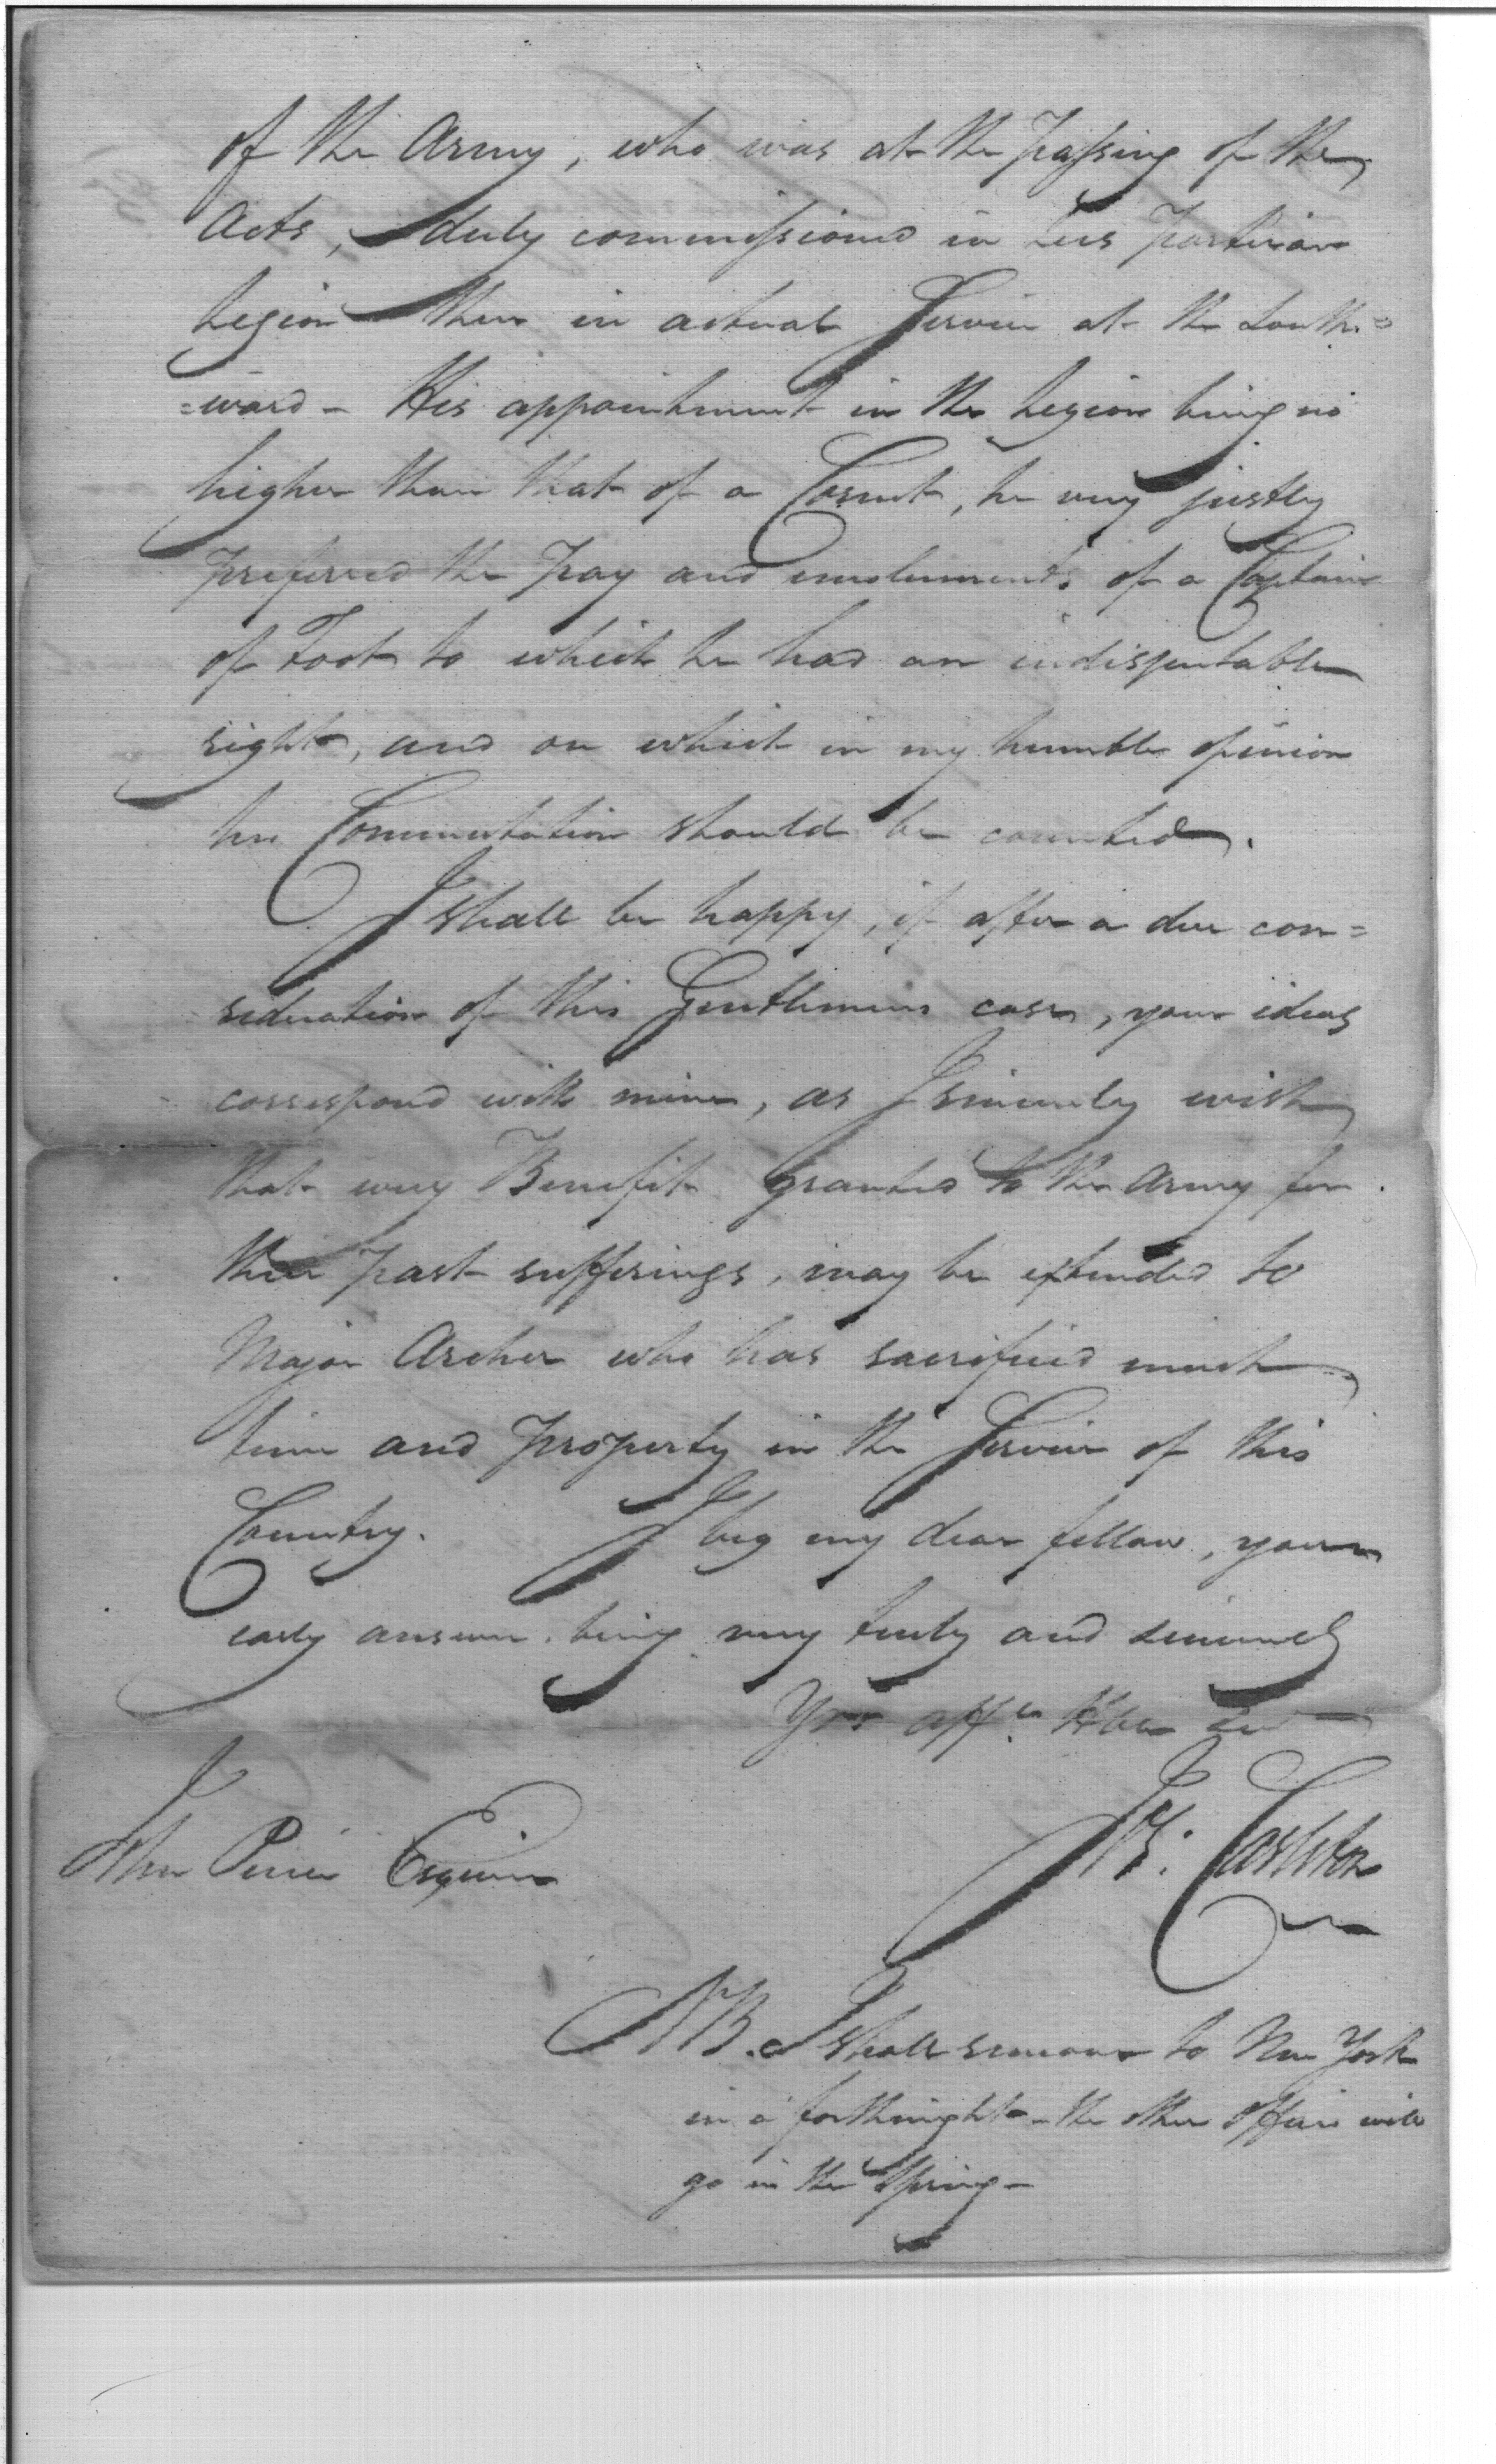 of the Army, who was at the passing of the
Acts, duly commissioned in Lees Partizan
Legion then in actual Service at the South=
=ward - His appointment in the Legion being no
higher than that of a Cornet, he very justly
preferred the pay and emoluments of a Captain
of Foot to which he had an indisputable
right, and on which in my humble opinion
his Commutation should be counted.
I shall be happy, if after a due con=
sideration of this Gentlemans case, your ideas
correspond with mine, as I sincerely wish
that every Benefit granted to the Army for
their past sufferings, may be extended to
Major Archer who has sacrificed much
time and property in the Service of this
Country. I beg my dear fellow, your
early answer, being very truly and sincerely
Yrs affe Hble Sert
Jos: Carleton
John Pierce Esquire
NB. I shall remove to New York
in a forthnight - the other Officers will
go in the Spring -